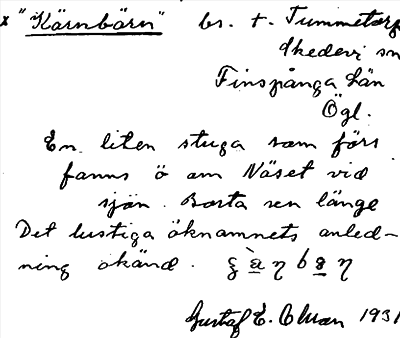 x "Kärnbärn" br. t. Tummetorp
Skedevi sn
Finspånga län
Ögl.
En liten stuga som förr
fanns ö om Näset vid
sjön. Borta sen länge
Det lustiga öknamnets anled-
ning okänd.
Gustaf E. Olsson 1931